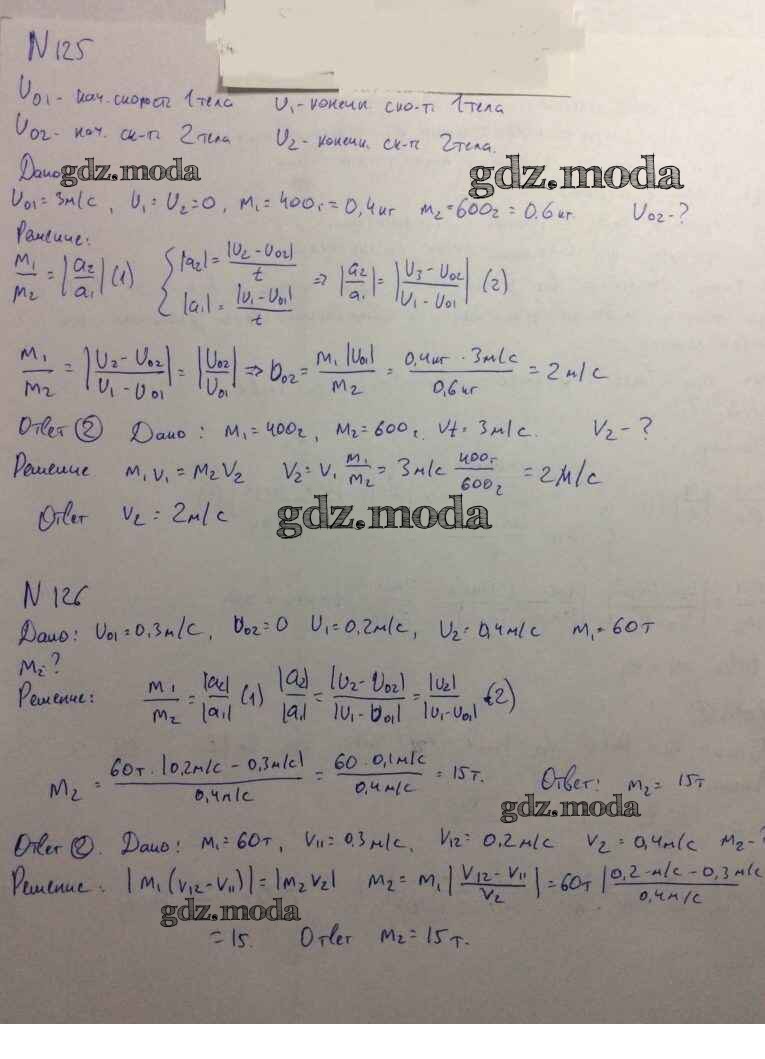 N 125
U01 - нач. скорость 1 тела U1 - конечн. ско-ть 1 тела
U02 - нач. ск-ть 2 тела U2 - конечн. ск-ть 2 тела.
Дано gdz.moda gdz.moda
U01 = 3м/с, U1 = U2 = 0, m1 = 400г = 0,4кг m2 = 600г = 0.6кг. U02 - ?
Решение:
m1/m2 = |a2/a1| (1) { |a2| = |U2 - U02|/t |a1| = |U1 - U01|/t => |a2/a1| = |U3 - U02/U1 - U01| (2)
m1/m2 = |U2 - U02/U1 - U01| = |U02/U01| => U02 = m1|U01|/m2 = 0,4кг · 3м/с/0,6кг = 2м/с
Ответ (2) Дано: m1 = 400г, m2 = 600г. Vt = 3м/с. V2 - ?
Решение. m1V1 = m2V2 V2 = V1 m1/m2 = 3м/с 400г/600г = 2м/с
Ответ V2 = 2м/с gdz.moda
N 126
Дано: U01 = 0,3м/с, U02 = 0 U1 = 0,2м/с, U2 = 0,4м/с m1 = 60т
m2 ?
Решение: m1/m2 = |a2|/|a1| (1) |a2|/|a1| = |U2 - U02|/|U1 - U01| = |U2|/|U1 - U01| (2)
m2 = 60т · |0,2м/с - 0,3м/с|/0,4м/с = 60 · 0,1м/с/0,4м/с = 15т. Ответ: m2 = 15т
gdz.moda
Ответ (2). Дано: m1 = 60т, V11 = 0.3м/с, V12 = 0.2м/с V2 = 0,4м/с m2 - ?
Решение: |m1(V12 - V11)| = |m2V2| m2 = m1 |V12 - V11/V2| = 60т |0,2 м/с - 0,3м/с/0,4м/с
gdz.moda
= 15. Ответ m2 = 15т.